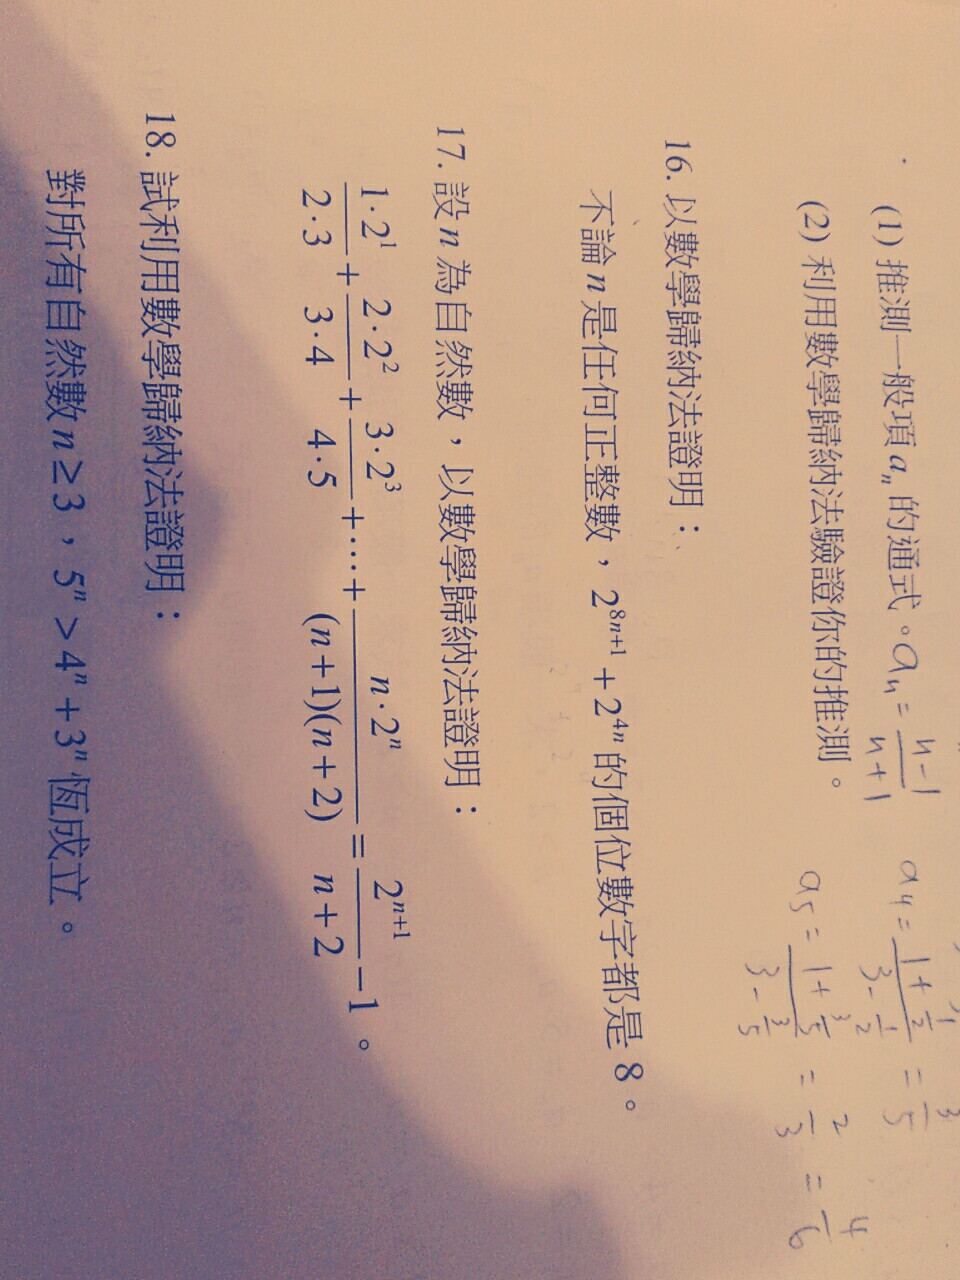 (1) 推測一般項 aₙ 的通式。aₙ = (n-1)/(n+1)
a₄ = (1+1/2)/(3-1/2) = 3/5
(2) 利用數學歸納法驗證你的推測。
a₅ = (1+3/5)/(3-3/5) = 2/3 = 4/6
16. 以數學歸納法證明：
不論 n 是任何正整數，2⁸ⁿ⁺¹ + 2⁴ⁿ 的個位數字都是 8。
17. 設 n 為自然數，以數學歸納法證明：
1·2¹/2·3 + 2·2²/3·4 + 3·2³/4·5 + ⋯ + n·2ⁿ/(n+1)(n+2) = 2ⁿ⁺¹/n+2 − 1。
18. 試利用數學歸納法證明：
對所有自然數 n ≥ 3，5ⁿ > 4ⁿ + 3ⁿ 恆成立。